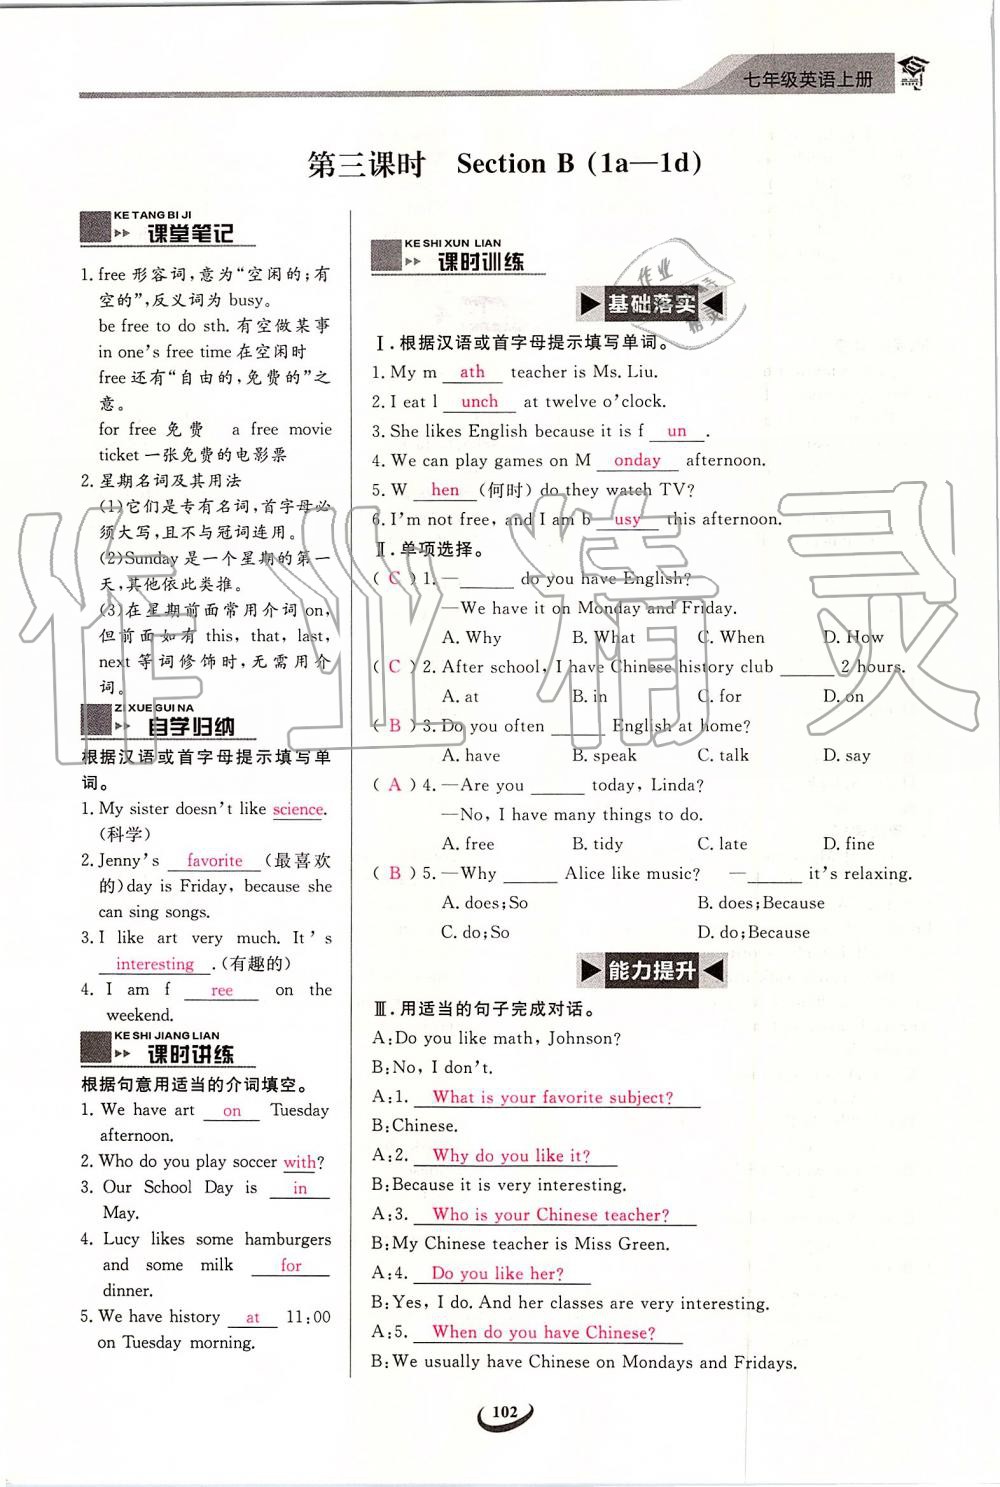 七年级英语上册
第三课时 Section B (1a—1d)
KE TANG BI JI
课堂笔记
1. free 形容词，意为“空闲的；有
空的”，反义词为 busy。
be free to do sth. 有空做某事
in one's free time 在空闲时
free 还有“自由的，免费的”之
意。
for free 免费 a free movie
ticket 一张免费的电影票
2. 星期名词及其用法
(1)它们是专有名词，首字母必
须大写，且不与冠词连用。
(2)Sunday 是一个星期的第一
天，其他依此类推。
(3)在星期前面常用介词 on，
但前面如有 this, that, last,
next 等词修饰时，无需用介
词。
ZI XUE GUI NA
自学归纳
根据汉语或首字母提示填写单
词。
1. My sister doesn't like science.
(科学)
2. Jenny's favorite (最喜欢
的) day is Friday, because she
can sing songs.
3. I like art very much. It's
interesting .(有趣的)
4. I am f ree on the
weekend.
KE SHI JIANG LIAN
课时讲练
根据句意用适当的介词填空。
1. We have art on Tuesday
afternoon.
2. Who do you play soccer with?
3. Our School Day is in
May.
4. Lucy likes some hamburgers
and some milk for
dinner.
5. We have history at 11:00
on Tuesday morning.
KE SHI XUN LIAN
课时训练
基础落实
Ⅰ. 根据汉语或首字母提示填写单词。
1. My m ath teacher is Ms. Liu.
2. I eat l unch at twelve o'clock.
3. She likes English because it is f un .
4. We can play games on M onday afternoon.
5. W hen (何时) do they watch TV?
6. I'm not free, and I am b usy this afternoon.
Ⅱ. 单项选择。
( C ) 1. —______ do you have English?
—We have it on Monday and Friday.
A. Why B. What C. When D. How
( C ) 2. After school, I have Chinese history club ______ 2 hours.
A. at B. in C. for D. on
( B ) 3. Do you often ______ English at home?
A. have B. speak C. talk D. say
( A ) 4. —Are you ______ today, Linda?
—No, I have many things to do.
A. free B. tidy C. late D. fine
( B ) 5. —Why ______ Alice like music? —______ it's relaxing.
A. does; So B. does; Because
C. do; So D. do; Because
能力提升
Ⅲ. 用适当的句子完成对话。
A: Do you like math, Johnson?
B: No, I don't.
A: 1. What is your favorite subject?
B: Chinese.
A: 2. Why do you like it?
B: Because it is very interesting.
A: 3. Who is your Chinese teacher?
B: My Chinese teacher is Miss Green.
A: 4. Do you like her?
B: Yes, I do. And her classes are very interesting.
A: 5. When do you have Chinese?
B: We usually have Chinese on Mondays and Fridays.
102
作业精灵